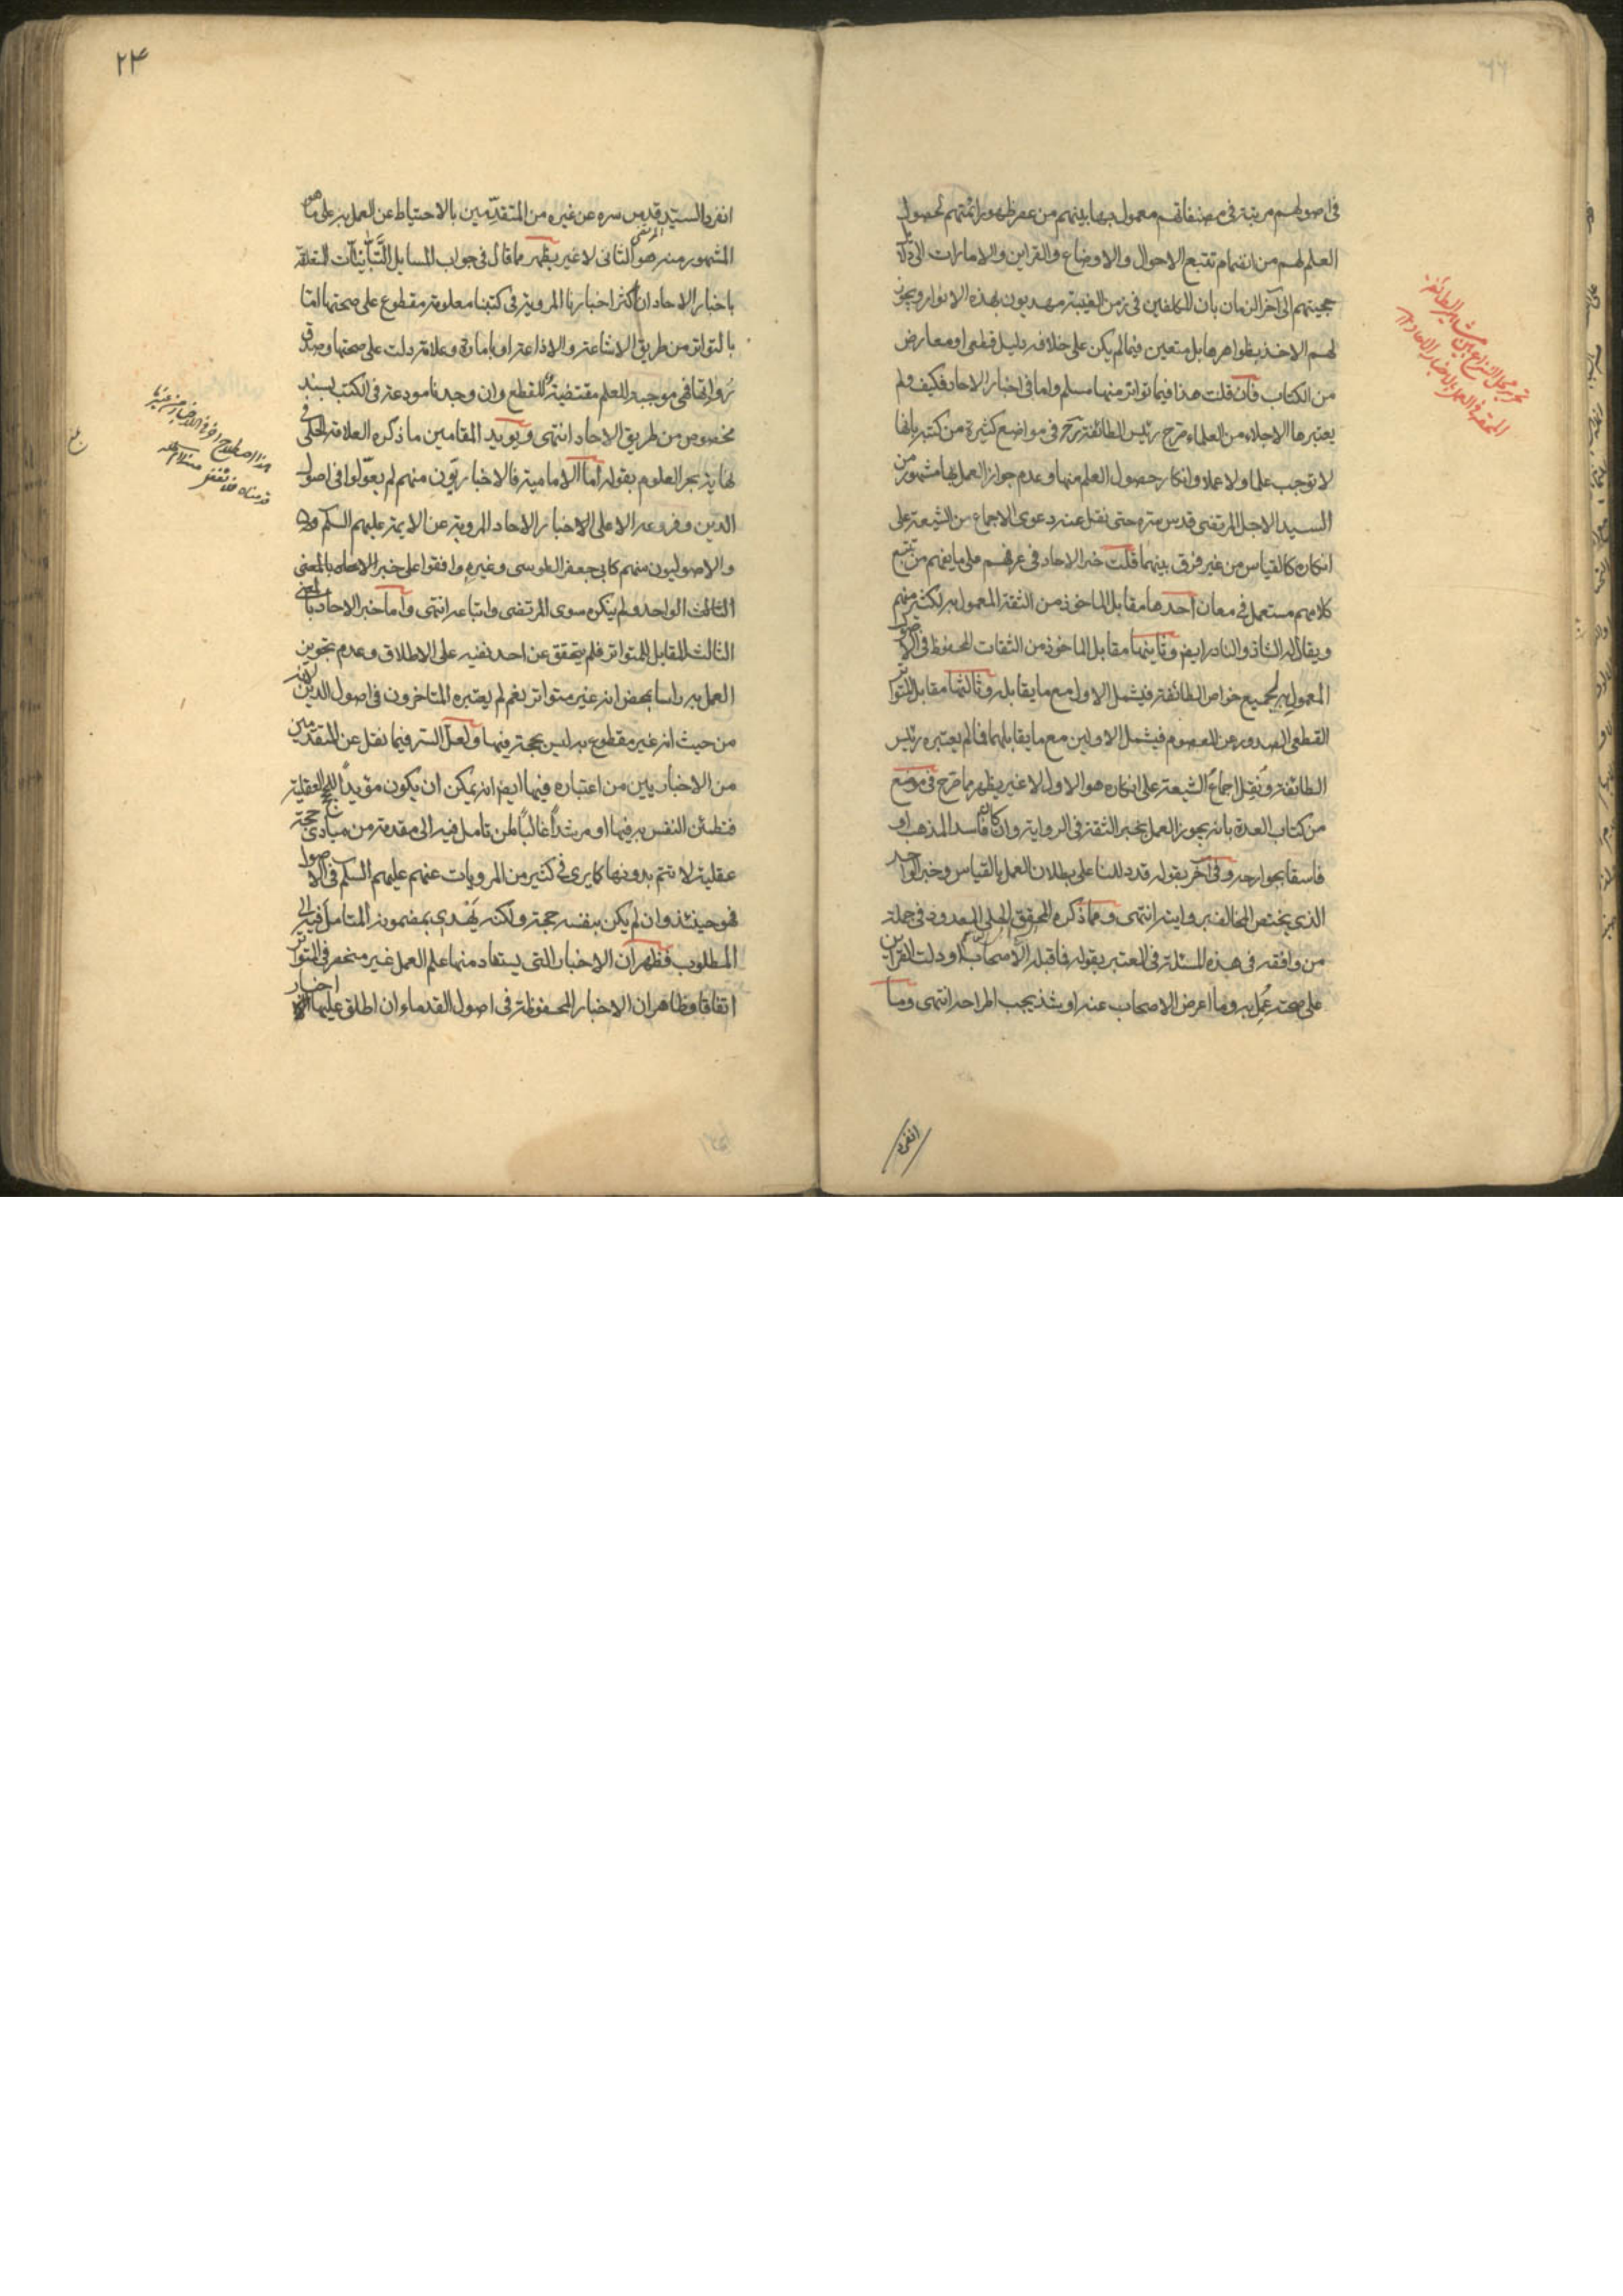 في اصولهم مرتبة في مصنفاتهم معمول بها بينهم من عصر ظهور ائمتهم لحصول
العلم لهم من انضمام تتبع الاحوال والاوضاع والقراين والامارات الى
حجيتهم الى آخر الزمان بان المكلفين في زمن الغيبة مهديون بهذه الانوار ويجوز
لهم الاخذ بظواهرها بل متعين فيما لم يكن على خلافه دليل قطعي او معارض
من الكتاب فان قلت هذا فيما تواتر منها مسلم واما في اخبار الاحاد فكيف ولم
يعتبرها الاجلاء من العلماء صرح رئيس الطائفة في مواضع كثيرة من كتبه بانها
لا توجب علما ولا عملا وانكار حصول العلم منها وعدم جواز العمل بها مشهور من
السيد الاجل المرتضى قدس سره حتى نقل عنه دعوى الاجماع من الشيعة على
انكاره كالقياس من غير فرق بينهما قلت خبر الاحاد في عرفهم على ما يفهم من تتبع
كلامهم مستعمل في معان احدها مقابل الماخوذ من الثقة المعمول به لكثير منهم
ويقال له الشاذ والنادر ايضا وثانيها مقابل الماخوذ من الثقات المحفوظ في الاصول
المعمول به لجميع خواص الطائفة فيشمل الاول مع ما يقابله وثالثها مقابل المتواتر
القطعي الصدور عن المعصوم فيشمل الاولين مع ما يقابلهما فما لم يعتبره رئيس
الطائفة ونقل اجماع الشيعة على انكاره هو الاول لا غير يظهر مما صرح في موضع
من كتاب العدة بانه يجوز العمل بخبر الثقة في الرواية وان كان فاسد المذهب او
فاسقا بجوارحه وفي آخر بقوله قد دللنا على بطلان العمل بالقياس وخبر الواحد
الذي يختص المخالف بروايته انتهى ومما ذكره المحقق الحلي المعدود في جملة
من وافقه في هذه المسئلة في المعتبر بقوله فما قبله الاصحاب او دلت القراين
على صحته عمل به وما اعرض الاصحاب عنه او شذ يجب اطراحه انتهى وما
انفرد
٢٤
انفرد السيد قدس سره عن غيره من المتقدمين بالاحتياط عن العمل به على ما هو
المشهور منه هو الثاني لا غير يظهر مما قال في جواب المسايل التبانيات المتعلقة
باخبار الاحاد ان اكثر اخبارنا المروية في كتبنا معلومة مقطوع على صحتها اما
بالتواتر من طريق الاشاعة والاذاعة او بامارة وعلامة دلت على صحتها وصدق
رواتها فهي موجبة للعلم مقتضية للقطع وان وجدناها مودعة في الكتب بسند
مخصوص من طريق الاحاد انتهى ويؤيد المقامين ما ذكره العلامة الحلي في
نهاية بحر العلوم بقوله اما الامامية فالاخباريون منهم لم يعولوا في اصول
الدين وفروعه الا على الاخبار الاحاد المروية عن الائمة عليهم السلم
والاصوليون منهم كابي جعفر الطوسي وغيره وافقوا على خبر
الواحد ولم ينكره سوى المرتضى واتباعه انتهى واما خبر الاحاد بالمعنى
الثالث المقابل للمتواتر فلم يتحقق عن احد نفيه على الاطلاق وعدم تجويز
العمل به راسا بمحض انه غير متواتر نعم لم يعتبره المتاخرون في اصول الدين لانه
من حيث انه غير مقطوع به ليس بحجة فيها ولعل السر فيما نقل عن المتقدمين
من الاخباريين من اعتباره فيها ايضا انه يمكن ان يكون مؤيدا للحجج العقلية
فتطمئن النفس به فيها او مرشدا غالبا لمن تامل فيه الى مقدمة من مبادي حجة
عقلية لا تتم بدونها كما يرى في كثير من المرويات عنهم عليهم السلم في الاصول
فهو حينئذ وان لم يكن بنفسه حجة ولكنه يهدي بمضمونه المتامل فيه الى
المطلوب فظهر ان الاخبار التي يستفاد منها علم العمل غير منحصر في التواتر
اتفاقا وظاهر ان الاخبار المحفوظة في اصول القدماء وان اطلق عليها اخبار